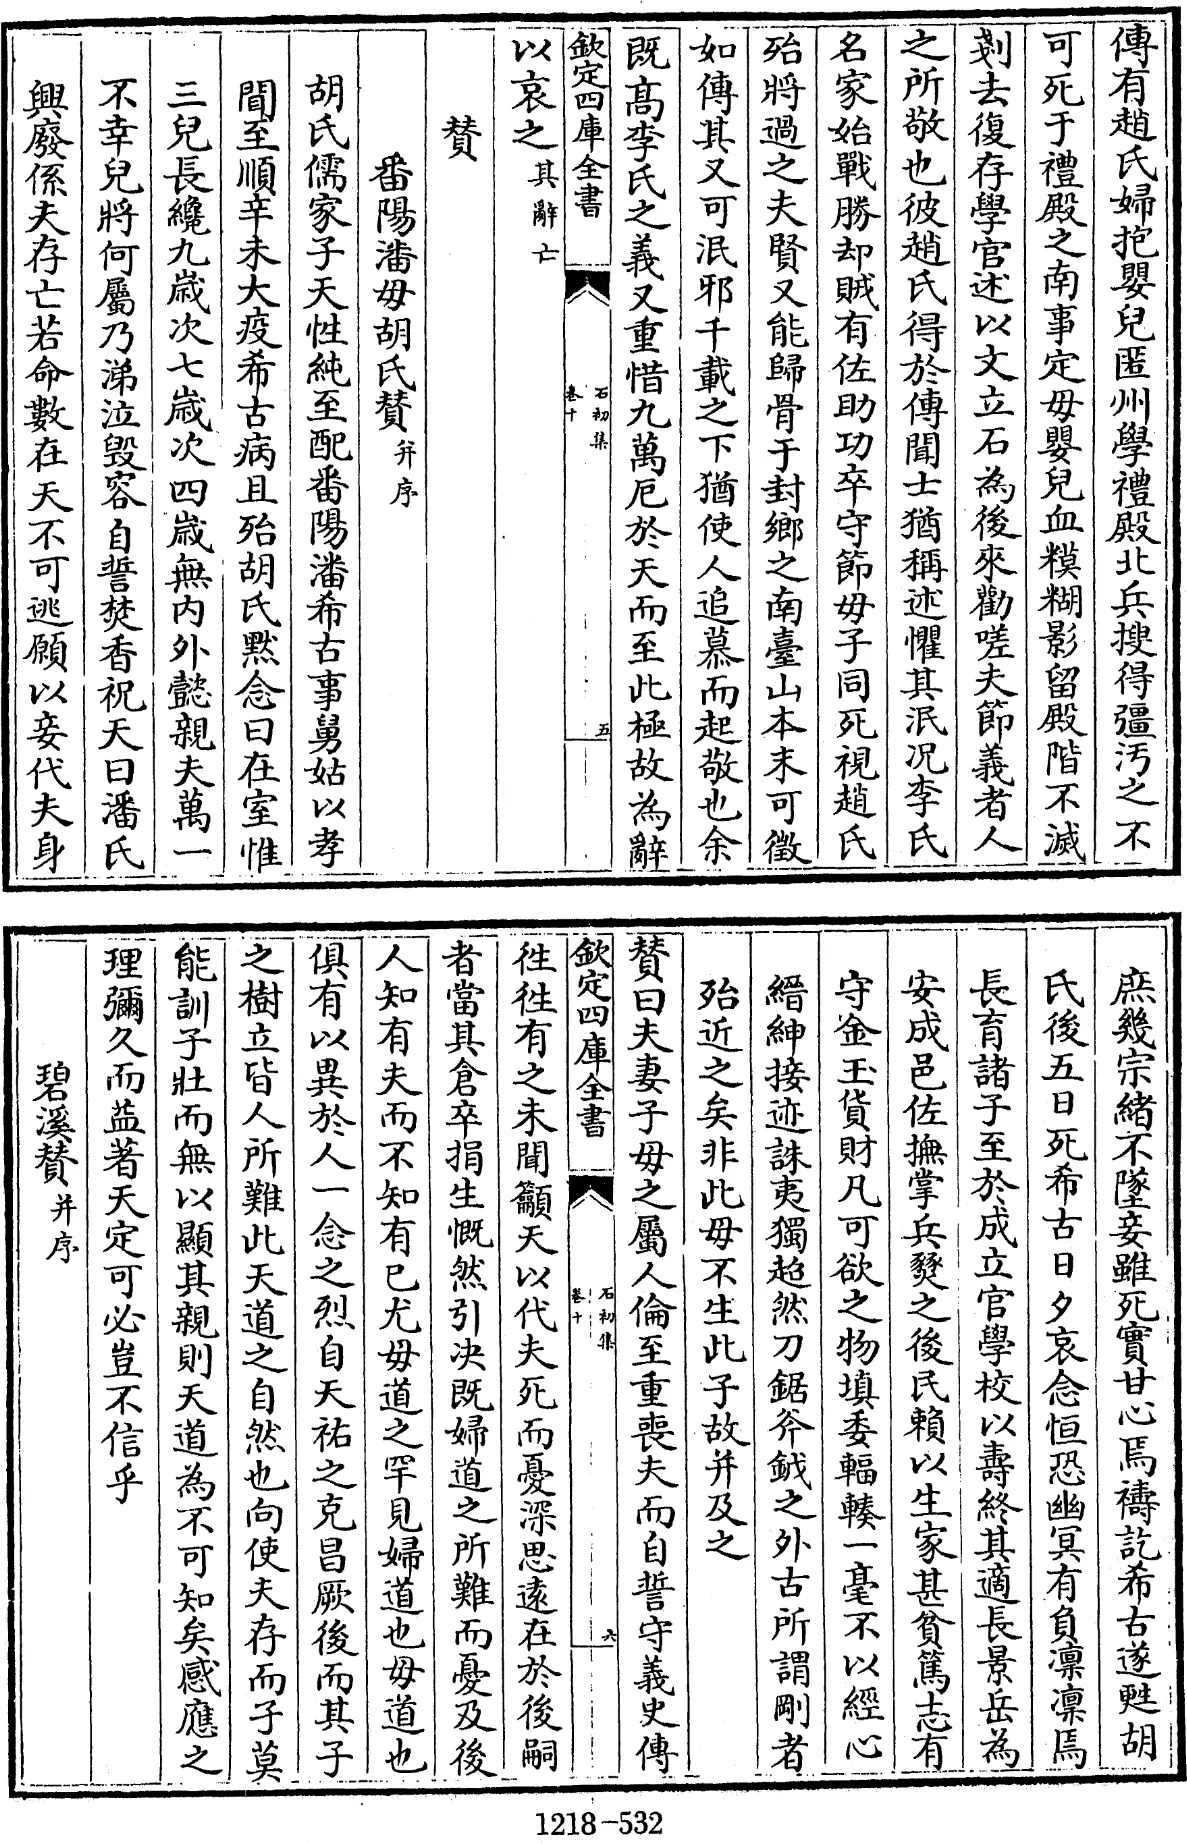 傳有趙氏婦抱嬰兒匿州學禮殿北兵搜得彊汚之不
可死于禮殿之南事定毋嬰兒血糢糊影留殿階不滅
剗去復存學官述以文立石為後來勸嗟夫節義者人
之所敬也彼趙氏得於傳聞士猶稱述懼其泯况李氏
名家始戰勝却賊有佐助功卒守節毋子同死視趙氏
殆將過之夫賢又能歸骨于封鄉之南臺山本末可徵
如傳其又可泯邪千載之下猶使人追慕而起敬也余
既髙李氏之義又重惜九萬厄於天而至此極故為辭
欽定四庫全書
石初集
卷十
五
以哀之其辭亡
贊
番陽潘毋胡氏贊并序
胡氏儒家子天性純至配番陽潘希古事舅姑以孝
聞至順辛未大疫希古病且殆胡氏黙念曰在室惟
三兒長纔九歲次七歲次四歲無内外懿親夫萬一
不幸兒將何屬乃涕泣毀容自誓焚香祝天曰潘氏
興廢係夫存亡若命數在天不可逃願以妾代夫身
庶幾宗緒不墜妾雖死實甘心焉禱訖希古遂甦胡
氏後五日死希古日夕哀念恒恐幽冥有負凛凛焉
長育諸子至於成立官學校以壽終其適長景岳為
安成邑佐撫掌兵燹之後民賴以生家甚貧篤志有
守金玉貨財凡可欲之物填委輻輳一毫不以經心
縉紳接迹誅夷獨超然刀鋸斧鉞之外古所謂剛者
殆近之矣非此毋不生此子故并及之
贊曰夫妻子毋之屬人倫至重喪夫而自誓守義史傳
欽定四庫全書
石初集
卷十
六
徃徃有之未聞籲天以代夫死而憂深思遠在於後嗣
者當其倉卒捐生慨然引决既婦道之所難而憂及後
人知有夫而不知有已尤毋道之罕見婦道也毋道也
俱有以異於人一念之烈自天祐之克昌厥後而其子
之樹立皆人所難此天道之自然也向使夫存而子莫
能訓子壯而無以顯其親則天道為不可知矣感應之
理彌久而益著天定可必豈不信乎
碧溪贊并序
1218-532